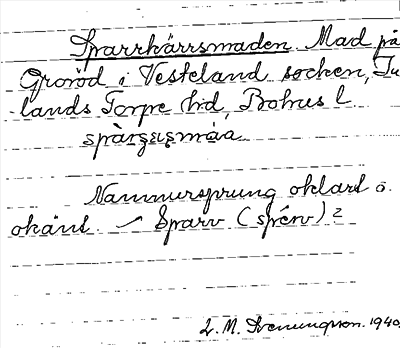 Sparrkärrsmaden Mad på
Groröd i Vesteland socken, Tu
-lands Torpe hd, Bohus l
Namnursprung oklart o.
okänt. – Sparv (spérv)?
L. M. Svenungsson. 1940